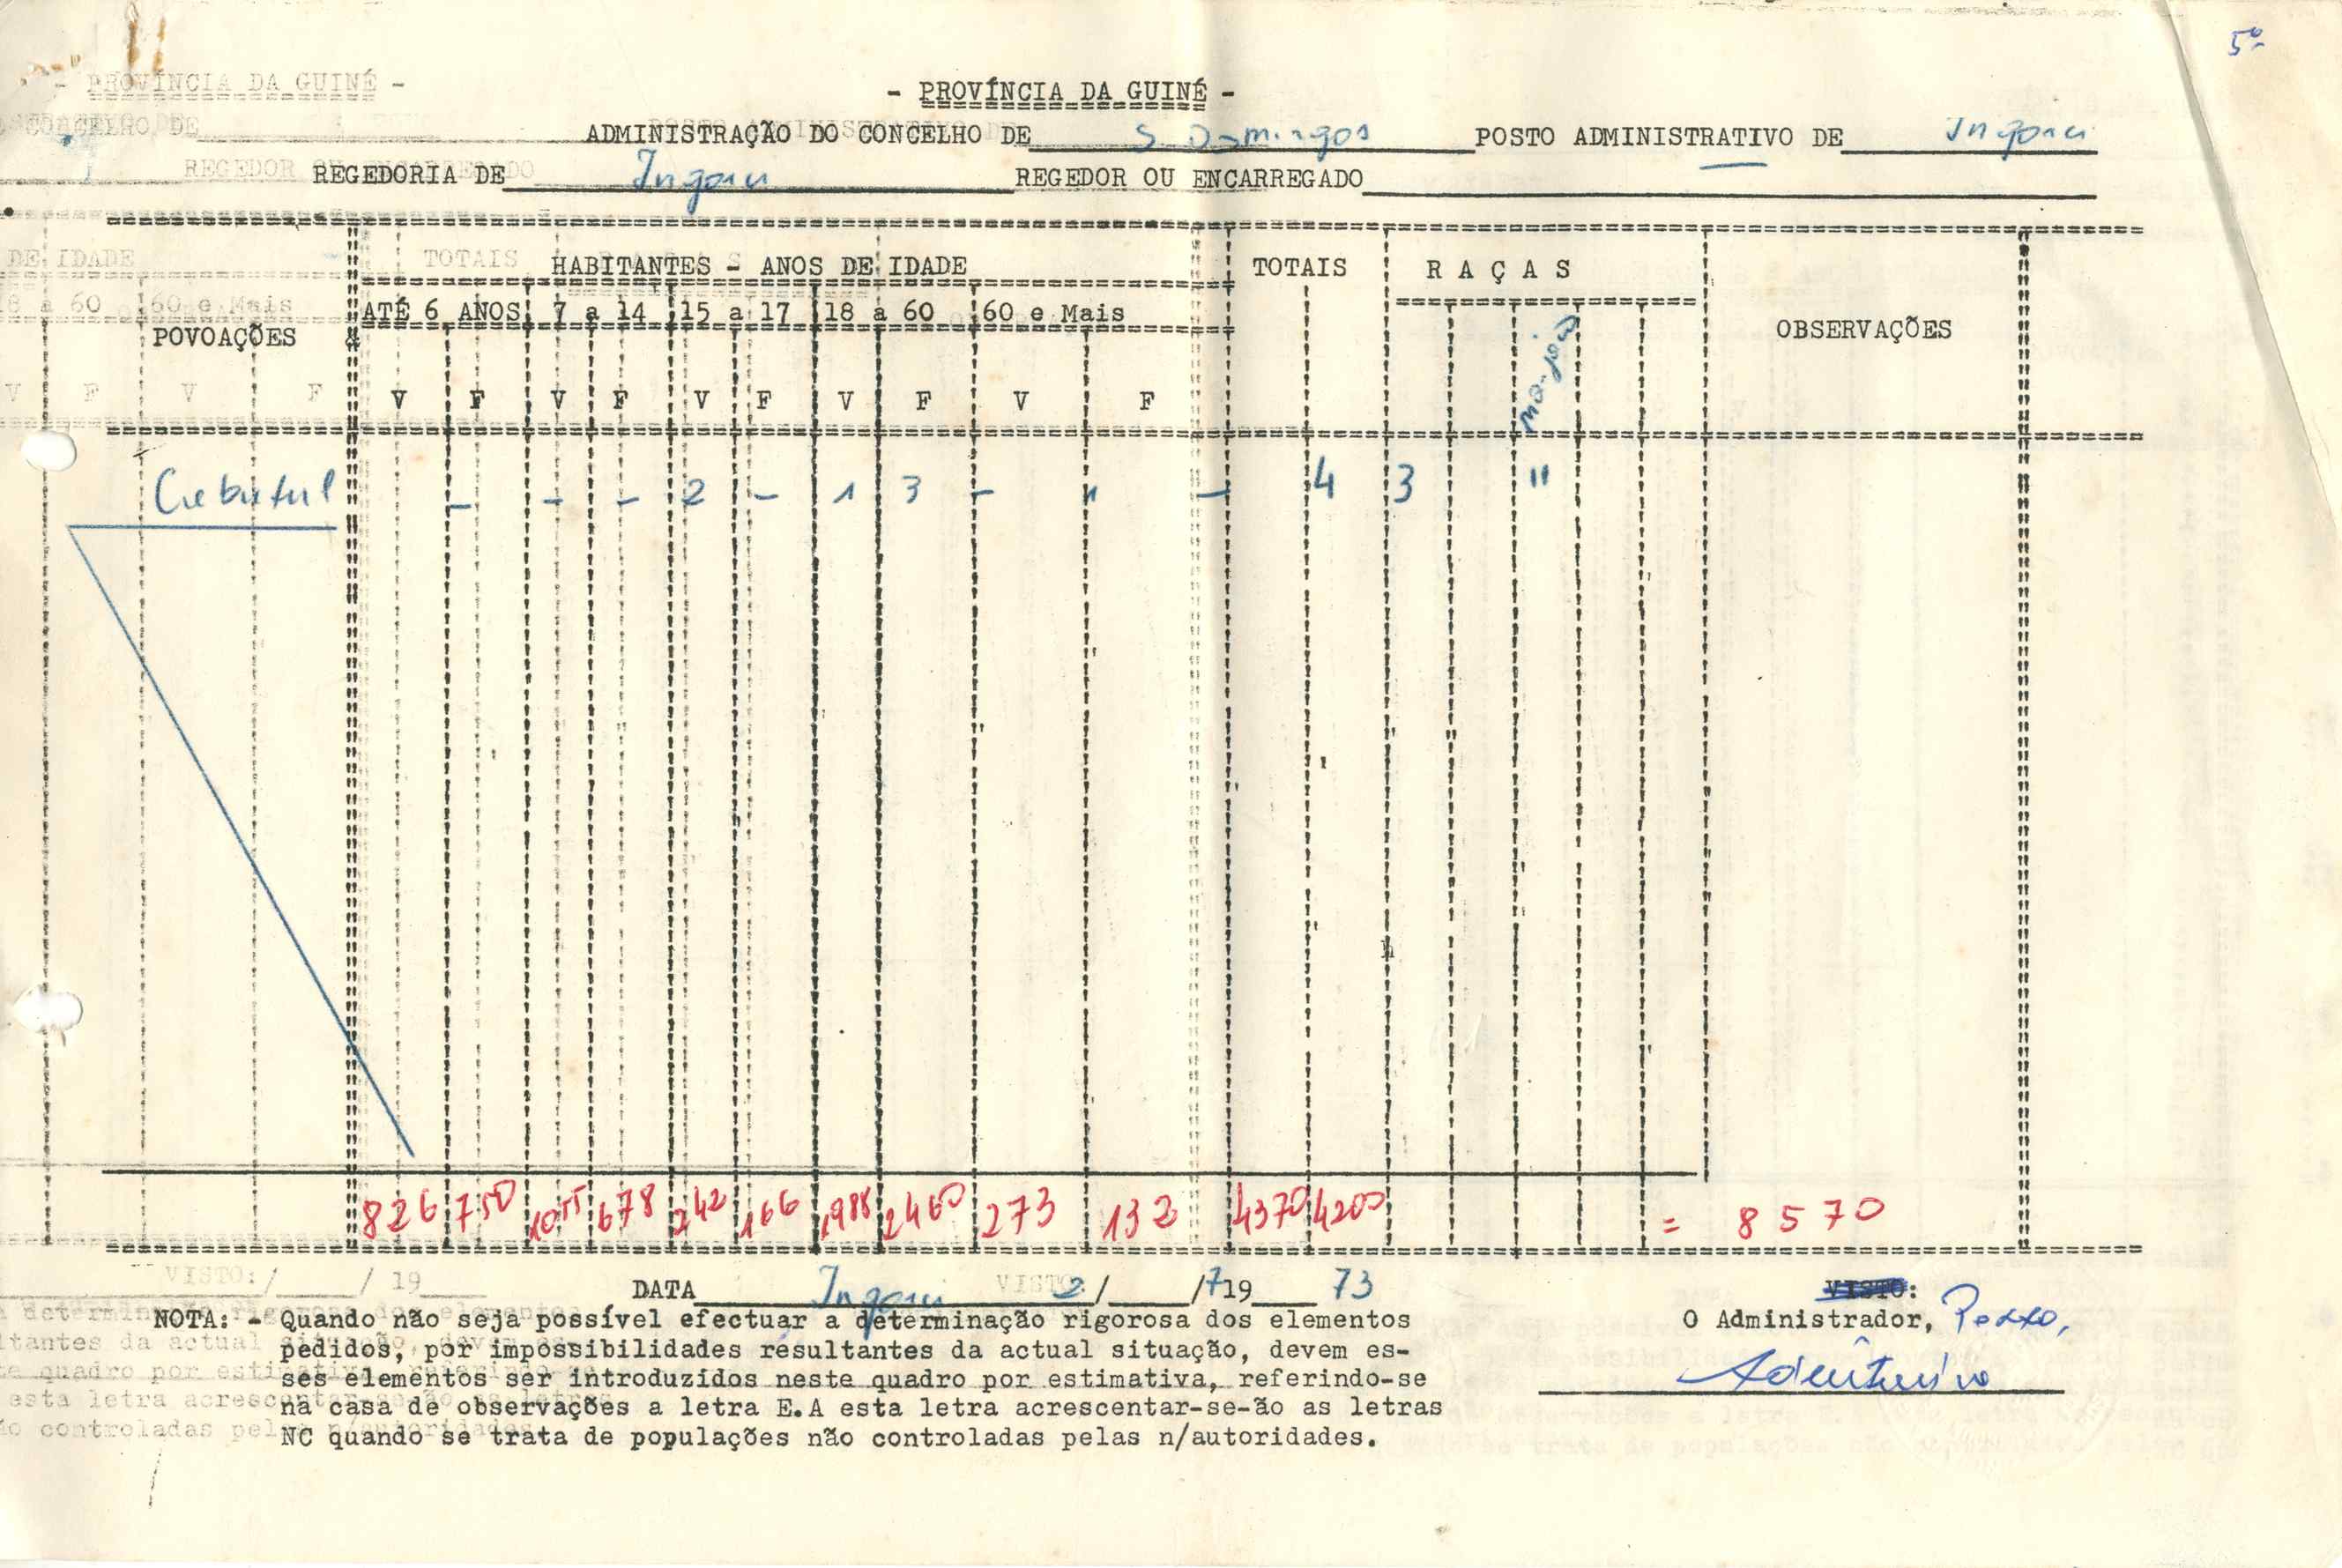 5º
- PROVÍNCIA DA GUINÉ -
- PROVÍNCIA DA GUINÉ -
ADMINISTRAÇÃO DO CONCELHO DE S Domingos POSTO ADMINISTRATIVO DE Ingoru
REGEDORIA DE Ingoru REGEDOR OU ENCARREGADO
POVOAÇÕES HABITANTES - ANOS DE IDADE TOTAIS RAÇAS OBSERVAÇÕES
ATÉ 6 ANOS 7 a 14 15 a 17 18 a 60 60 e Mais
V F V F V F V F V F
- - - 2 - 1 3 - 1 - 4 3 "
826 750 1055 678 242 166 1988 2460 273 132 4370 4200 = 8570
DATA Ingoru 2/ /7 19 73
VISTO:
O Administrador, Posto,
NOTA: - Quando não seja possível efectuar a determinação rigorosa dos elementos
pedidos, por impossibilidades résultantes da actual situação, devem es-
ses elementos ser introduzidos neste quadro por estimativa, referindo-se
na casa de observações a letra E.A esta letra acrescentar-se-ão as letras
NC quando se trata de populações não controladas pelas n/autoridades.